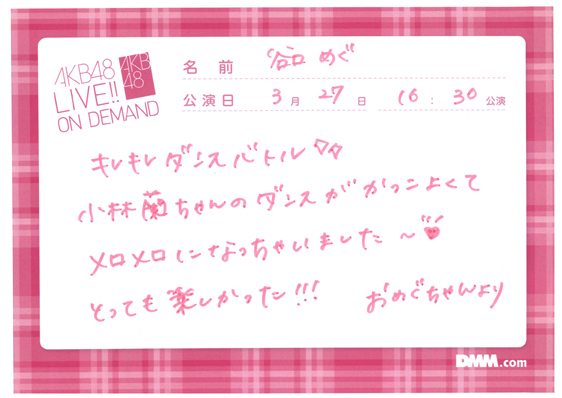 AKB48
LIVE!!
ON DEMAND
AKB
48
名 前 谷口 めぐ
公演日 3月 27日 16:30公演
キレキレダンスバトル♡♡
小林蘭ちゃんのダンスがかっこよくて
メロメロになっちゃいました〜♥
とっても楽しかった!!! おめぐちゃんより
DMM.com